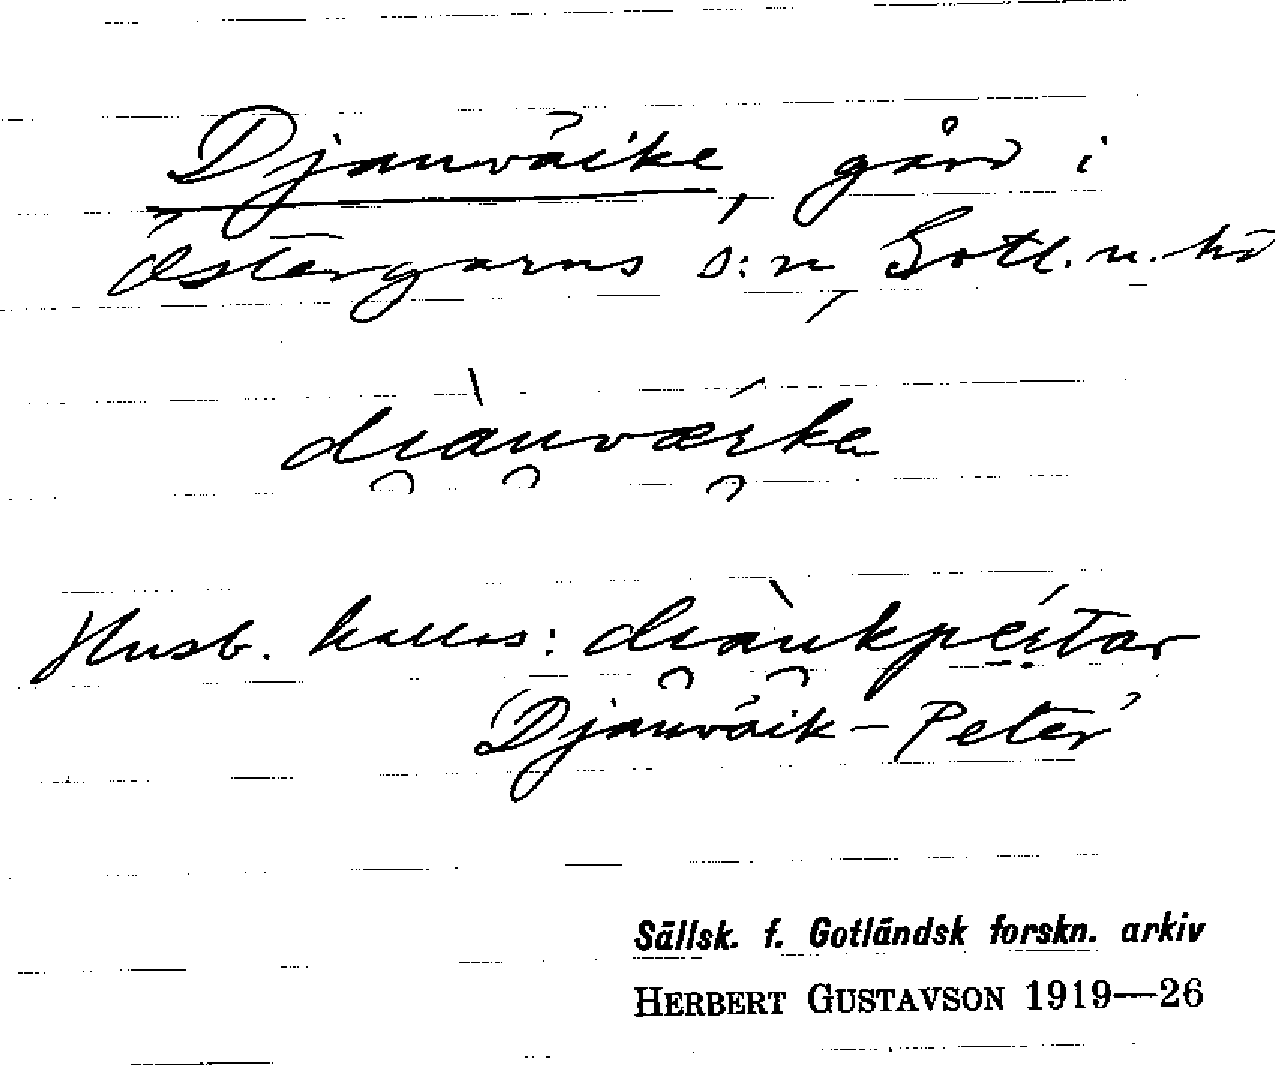 Djauväike, gård i
Östergarns s:n, Gotl. n. hd
di̯àu̯væi̯ka
Husb. kallas: di̯àu̯kpéitar
Djauväik - Peter
Sällsk. f. Gotländsk forskn. arkiv
HERBERT GUSTAVSON 1919—26